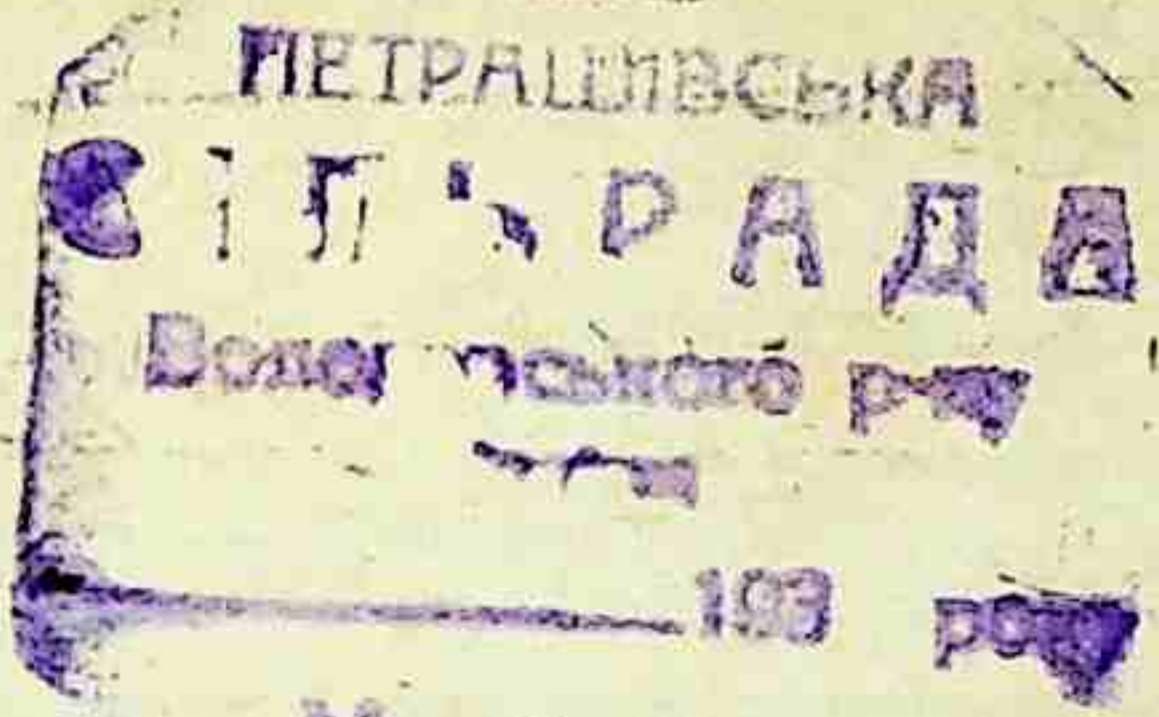 ПЕТРАШІВСЬКА
СІЛЬРАДА
Володарського р-ну
193 року